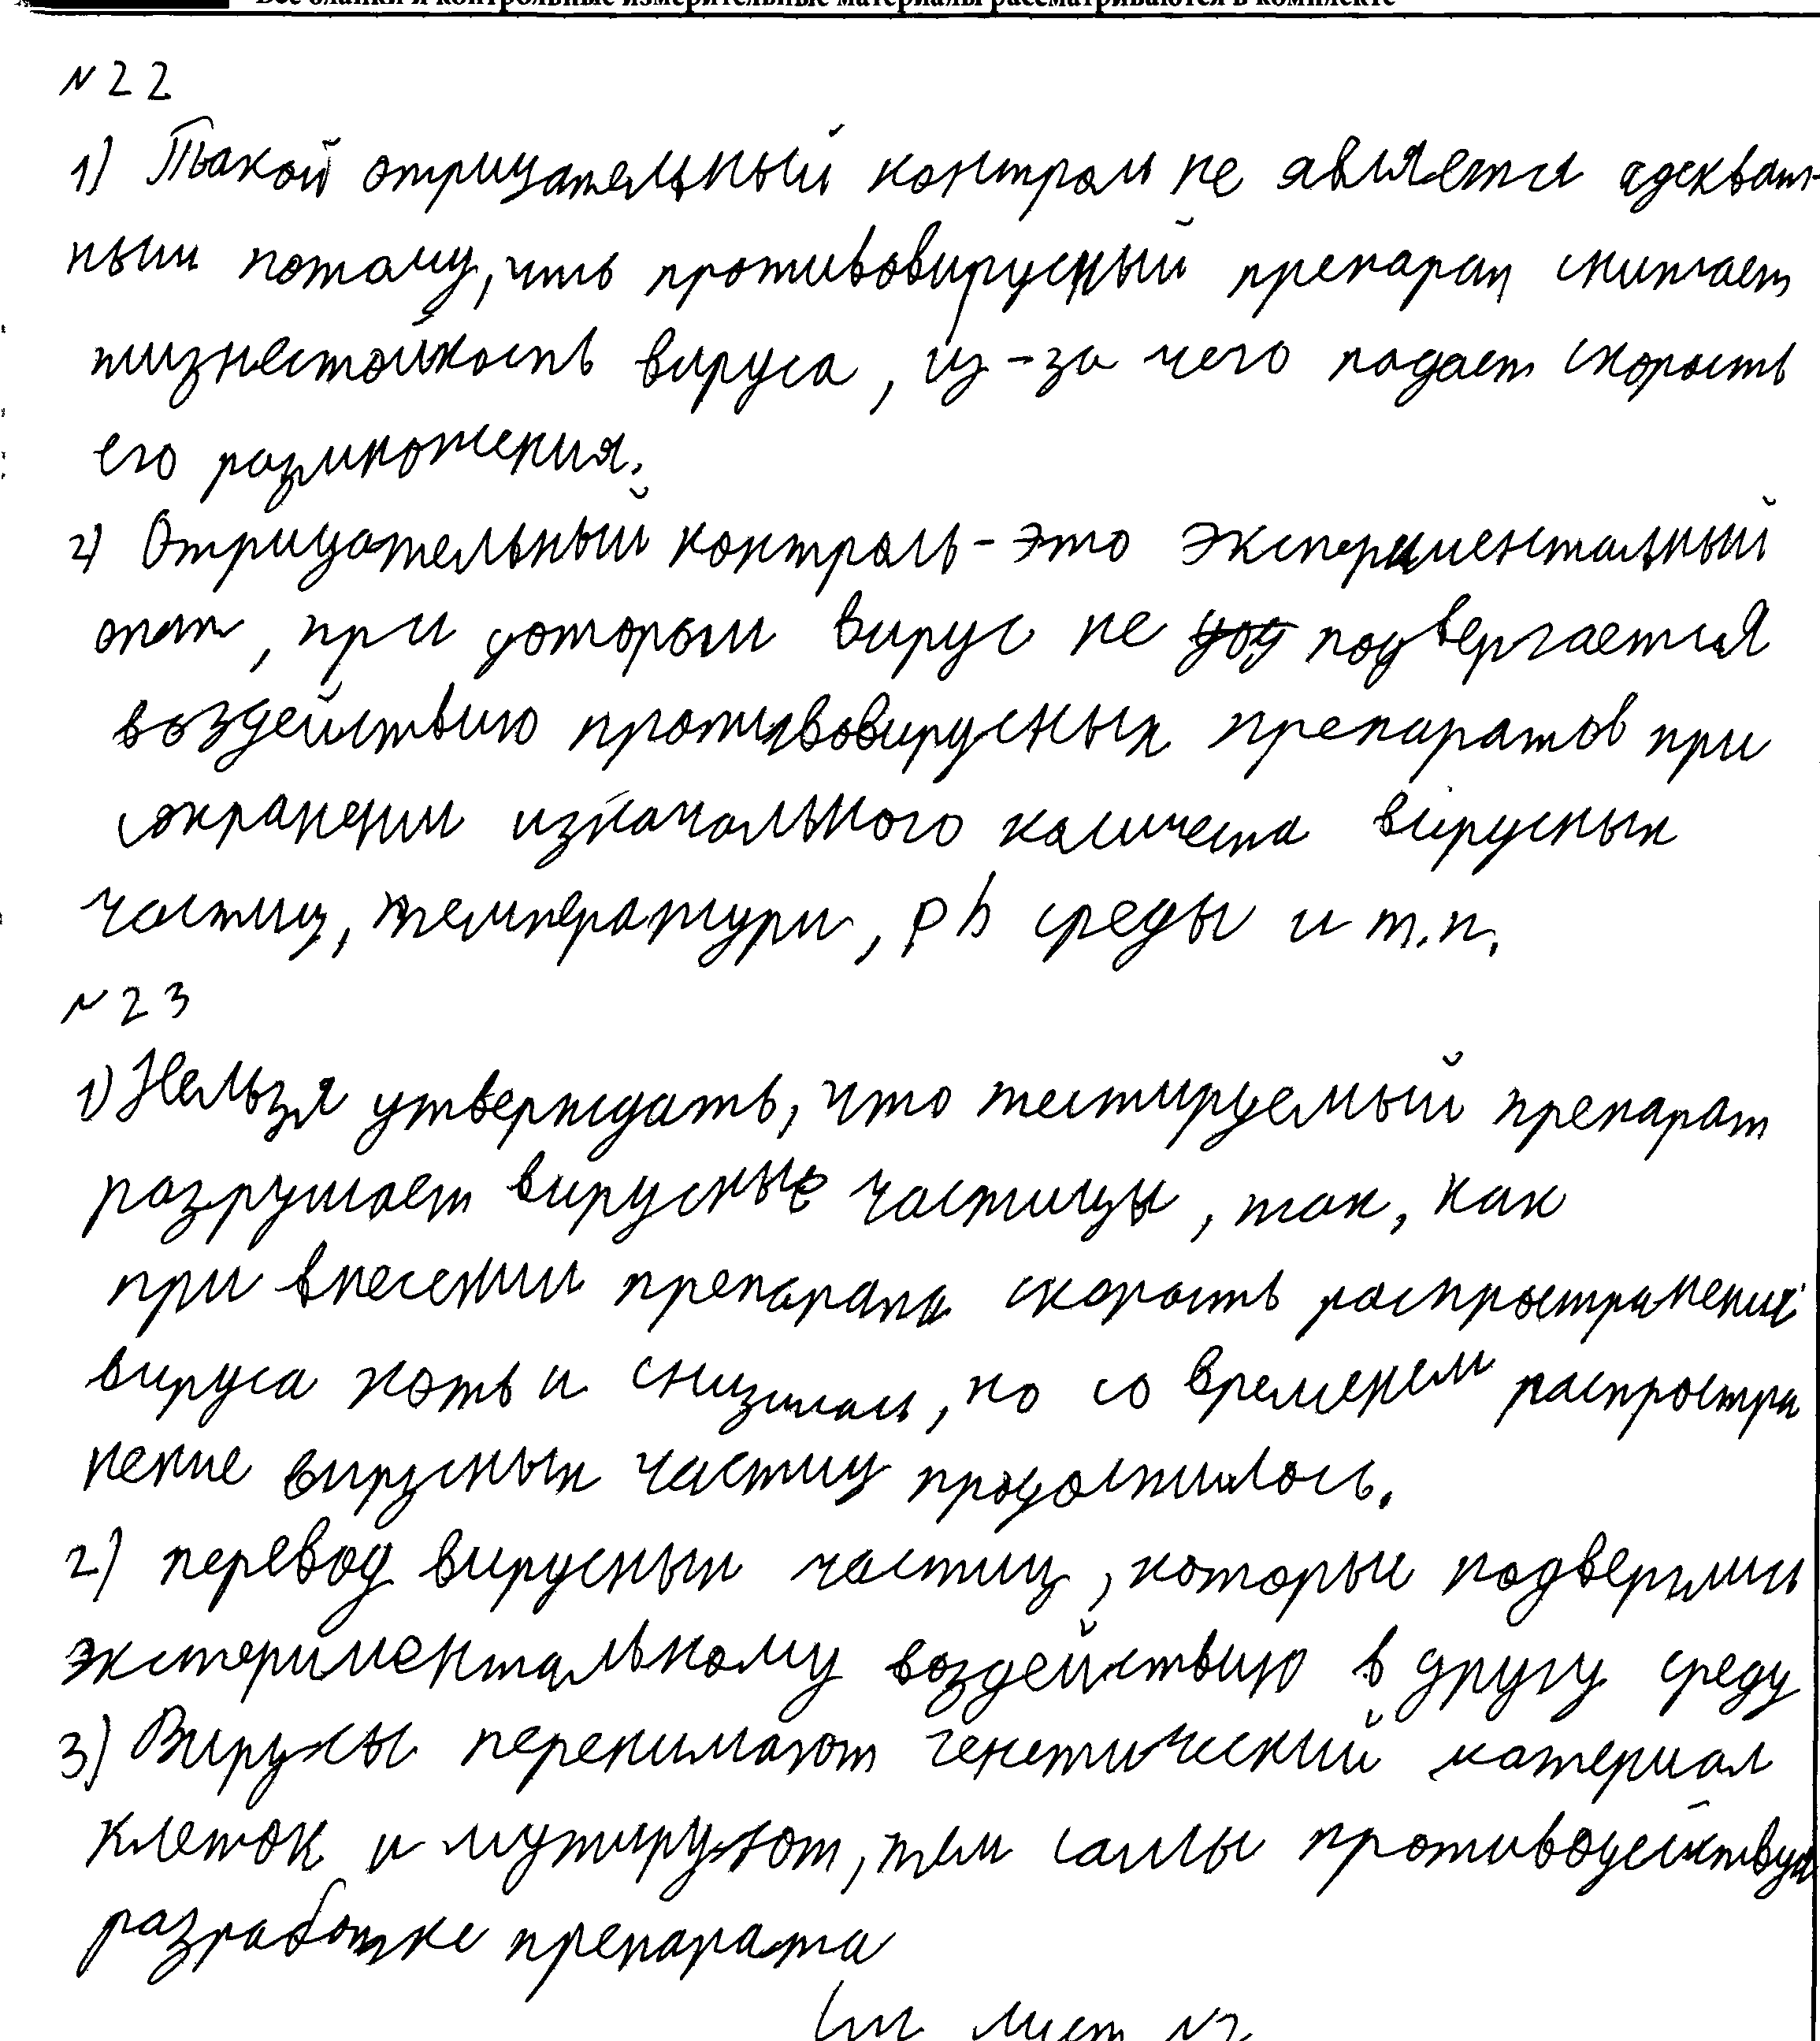 Все бланки и контрольные измерительные материалы рассматриваются в комплекте
№ 22
1) Такой отрицательный контроль не является адекват-
ным потому, что противовирусный препарат снижает
жизнестойкость вируса, из-за чего падает скорость
его размножения.
2) Отрицательный контроль - это экспериментальный
этап, при котором вирус не подвергается
воздействию противовирусных препаратов при
сохранении изначального количеста вирусных
частиц, температуры, ph среды и т.п.
№ 23
1) Нельзя утверждать, что тестируемый препарат
разрушает вирусные частицы, так, как
при внесении препарата скорость распространения
вируса хоть и снизилась, но со временем распростра
нение вирусных частиц продолжилось.
2) перевод вирусных частиц, которые подверглись
экспериментальному воздействию в другу среду
3) Вирусы перенимают генетический материал
клеток и мутируют, тем самы противодействуя
разработке препарата
См лист №2